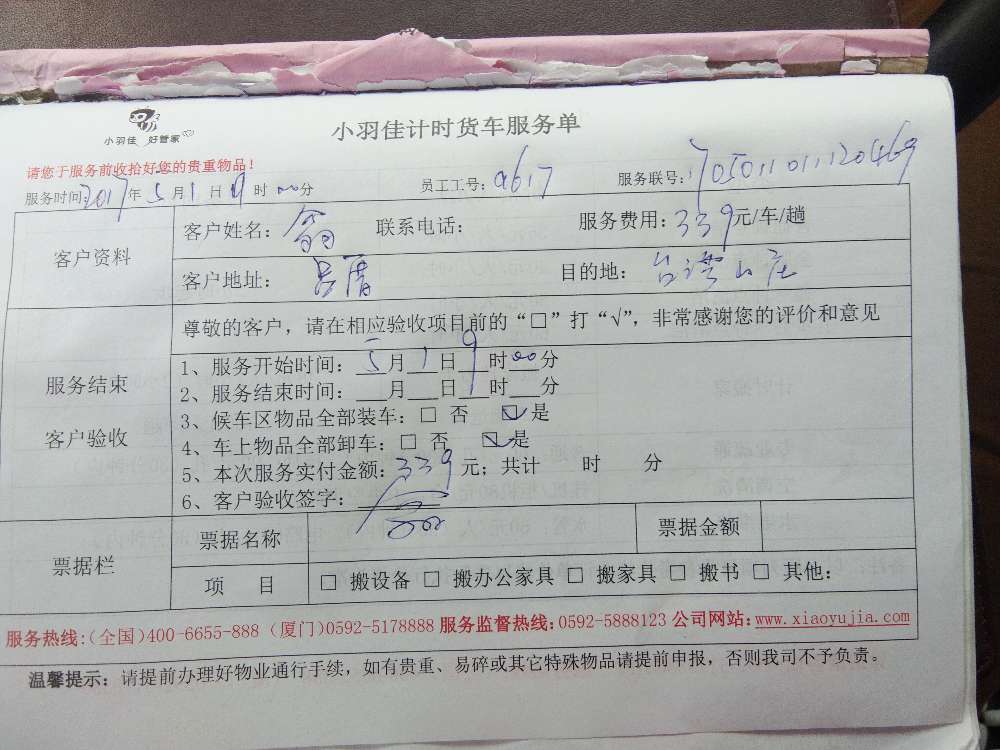 小羽佳 好管家
小羽佳计时货车服务单
请您于服务前收拾好您的贵重物品!
服务时间:2017年5月1日9时00分 员工工号:a617 服务联号:1705011011120469
客户资料 客户姓名: 联系电话: 服务费用:339元/车/趟
客户地址: 吕厝 目的地: 台湾山庄
尊敬的客户,请在相应验收项目前的“□”打“√”,非常感谢您的评价和意见
服务结束
客户验收
1、服务开始时间:5月1日9时00分
2、服务结束时间:___月___日___时___分
3、候车区物品全部装车:□ 否 ☑是
4、车上物品全部卸车:□ 否 ☑是
5、本次服务实付金额:339元;共计 时 分
6、客户验收签字:
票据栏 票据名称 票据金额
项 目 □ 搬设备 □ 搬办公家具 □ 搬家具 □ 搬书 □ 其他:
服务热线:(全国)400-6655-888 (厦门)0592-5178888 服务监督热线:0592-5888123 公司网站:www.xiaoyujia.com
温馨提示:请提前办理好物业通行手续,如有贵重、易碎或其它特殊物品请提前申报,否则我司不予负责。